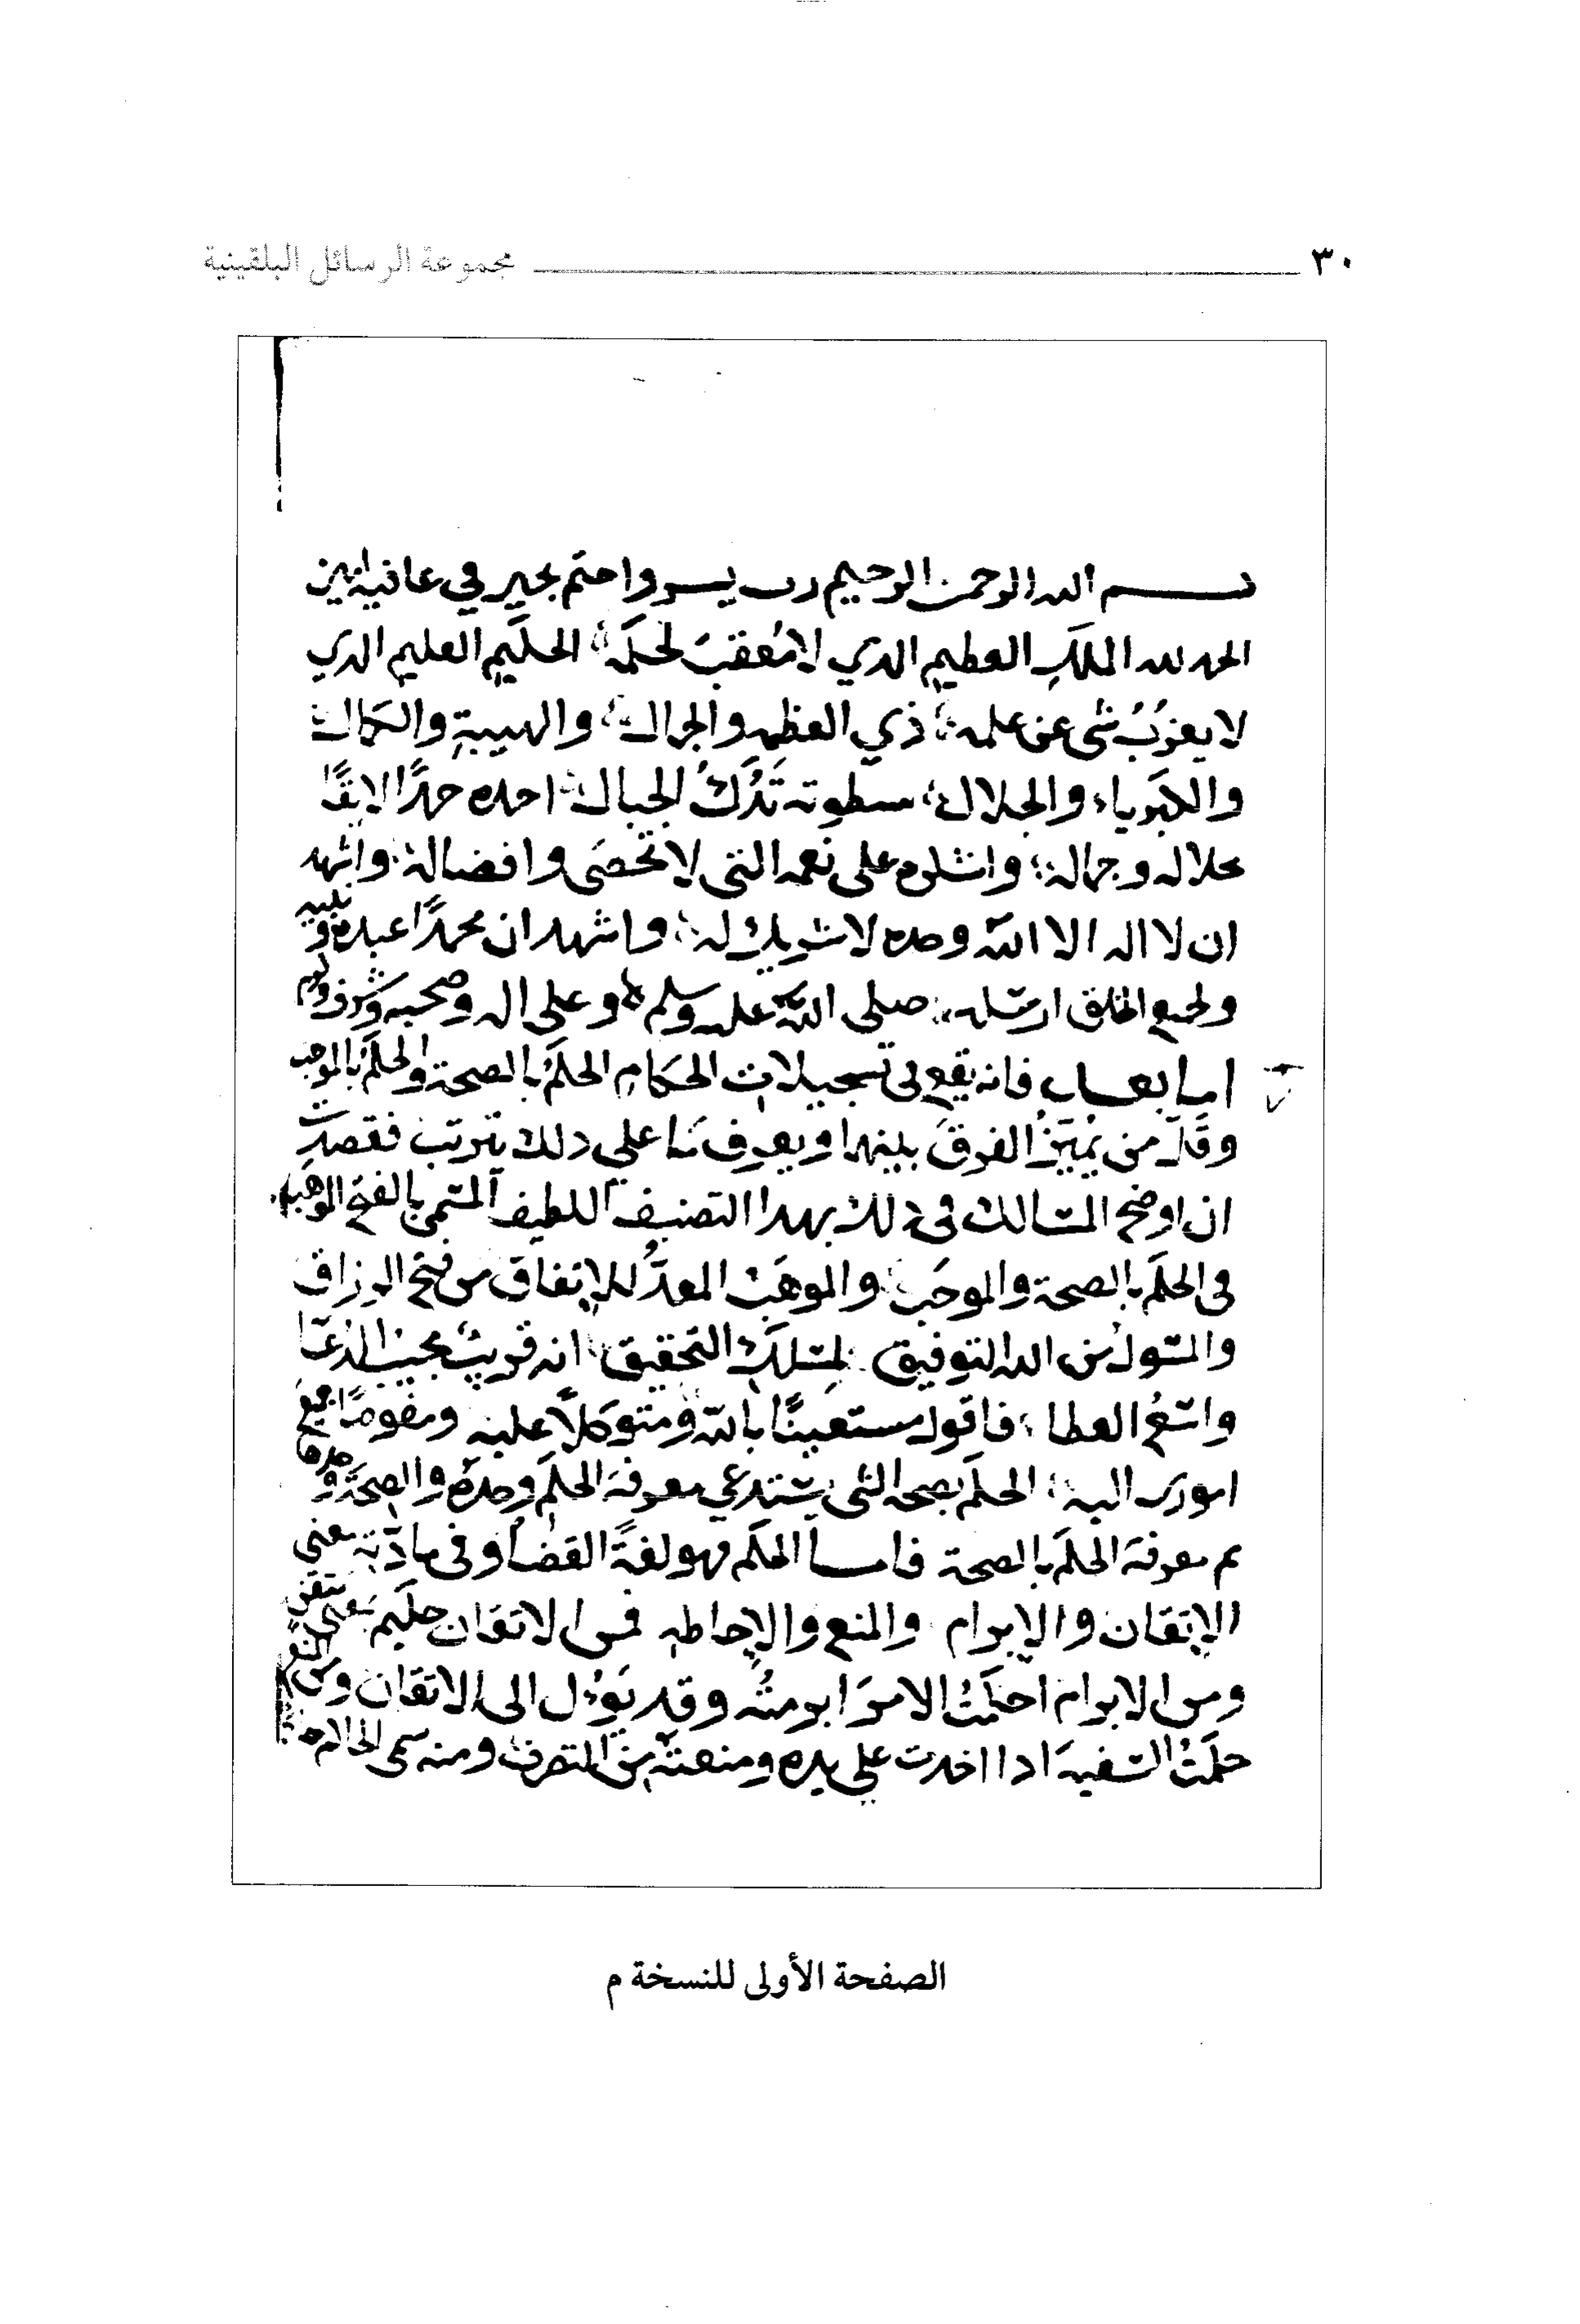 ٣٠ مجموعة الرسائل البلقينية
بسم الله الرحمن الرحيم رب يسر واختم بخير في عافية امين
الحمد لله الملك العظيم الذي لا مُعقبَ لحكمه الحكيم العليم الذي
لا يعزُبُ شي عن علمه ذي العظمه والجلال والهيبةِ والكمال
والكبرياء والجلال سطوته تَدُكُ الجبال احمده حمدًا لايقًا
بجلاله وجماله واشكره على نعمه التي لا تحصَى وافضاله واشهد
ان لا اله الا الله وحده لا شريك له واشهد ان محمدًا عبده ونبيه
ولجميع الخلق ارسله صلى الله عليه وسلم وعلى اله وصحبه وشرف وكرم
اما بعد فانه يقع في تسجيلات الحكام الحكمُ بالصحة والحكمُ بالموجب
وقَلَّ من يُميّزُ الفرقَ بينهما ويعرف ما على ذلك يترتب فقصدت
ان اوضح المسالك في ذلك بهذا التصنيف اللطيف المسمى بالفتح الموهب
في الحكم بالصحة والموجَب والموهَب المعدُّ للانفاق من فتح الرزاق
والمسول من الله التوفيق لمسلك التحقيق انه قريب مجيب الدعا
واسعُ العطا فاقول مستعينًا بالله ومتوكلاً عليه ومفوضًا جميع
اموري اليه الحكم بصحه الشي يستدعي معرفة الحكم وحده والصحة وحدها
ثم معرفة الحكم بالصحة فاما الحكم فهو لغةً القضا وفي مادته معنى
الاتقان والابرام والمنع والاحاطه فمن الاتقان حكيم بمعنى متقن
ومن الابرام احكمتُ الامرَ ابرمته وقد يَؤُل الى الاتقان ومن المنع
حكمتُ السفيهَ اذا اخذت على يده ومنعته من التصرف ومنه سمى الحاكم
الصفحة الأولى للنسخة م